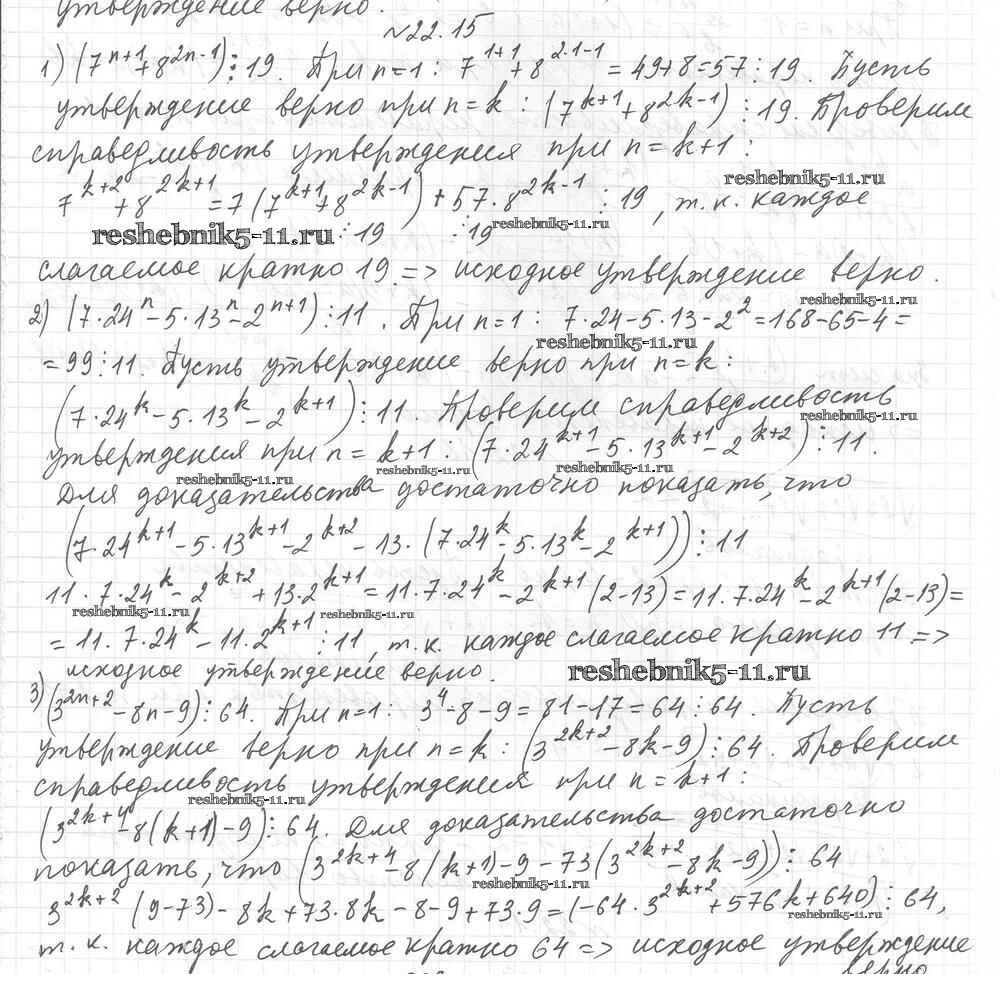 утверждение верно.
№22.15
1) (7^{n+1}+8^{2n-1})⋮19. При n=1: 7^{1+1}+8^{2·1-1}=49+8=57⋮19. Пусть
утверждение верно при n=k: (7^{k+1}+8^{2k-1})⋮19. Проверим
справедливость утверждения при n=k+1:
reshebnik5-11.ru
7^{k+2}+8^{2k+1}=7(7^{k+1}+8^{2k-1})+57·8^{2k-1}⋮19, т.к. каждое
reshebnik5-11.ru ⋮19 ⋮19 reshebnik5-11.ru
слагаемое кратно 19 => исходное утверждение верно.
reshebnik5-11.ru
2) (7·24^n-5·13^n-2^{n+1})⋮11. При n=1: 7·24-5·13-2^2=168-65-4=
reshebnik5-11.ru
=99⋮11. Пусть утверждение верно при n=k:
(7·24^k-5·13^k-2^{k+1})⋮11. Проверим справедливость
reshebnik5-11.ru
утверждения при n=k+1: (7·24^{k+1}-5·13^{k+1}-2^{k+2})⋮11.
reshebnik5-11.ru reshebnik5-11.ru reshebnik5-11.ru
Для доказательства достаточно показать, что
(7·24^{k+1}-5·13^{k+1}-2^{k+2}-13·(7·24^k-5·13^k-2^{k+1}))⋮11
11·7·24^k-2^{k+2}+13·2^{k+1}=11·7·24^k-2^{k+1}(2-13)=11·7·24^k-2^{k+1}(2-13)=
reshebnik5-11.ru reshebnik5-11.ru
=11·7·24^k-11·2^{k+1}⋮11, т.к. каждое слагаемое кратно 11 =>
исходное утверждение верно. reshebnik5-11.ru
3) (3^{2n+2}-8n-9)⋮64. При n=1: 3^4-8-9=81-17=64⋮64. Пусть
утверждение верно при n=k: (3^{2k+2}-8k-9)⋮64. Проверим
справедливость утверждения при n=k+1:
reshebnik5-11.ru
(3^{2k+4}-8(k+1)-9)⋮64. Для доказательства достаточно
показать, что (3^{2k+4}-8(k+1)-9-73(3^{2k+2}-8k-9))⋮64
reshebnik5-11.ru
3^{2k+2}(9-73)-8k+73·8k-8-9+73·9=(-64·3^{2k+2}+576k+640)⋮64,
reshebnik5-11.ru
т.к. каждое слагаемое кратно 64 => исходное утверждение
верно